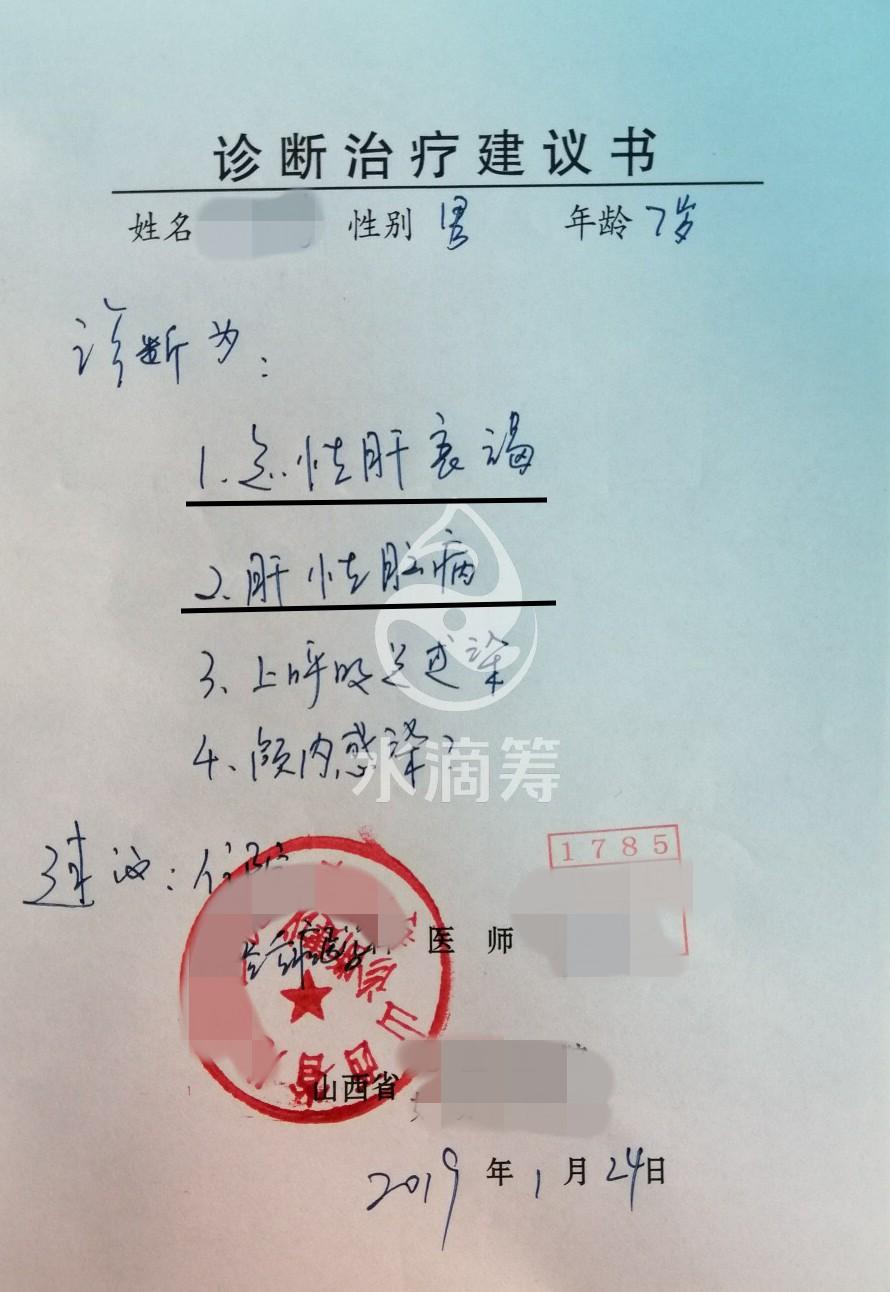 诊断治疗建议书
姓名 性别 男 年龄 7岁
诊断为:
1.急性肝衰竭
2.肝性脑病
3、上呼吸道感染
4、颅内感染?
水滴筹
建议:住院
1785
医师
山西省
2019年1月24日